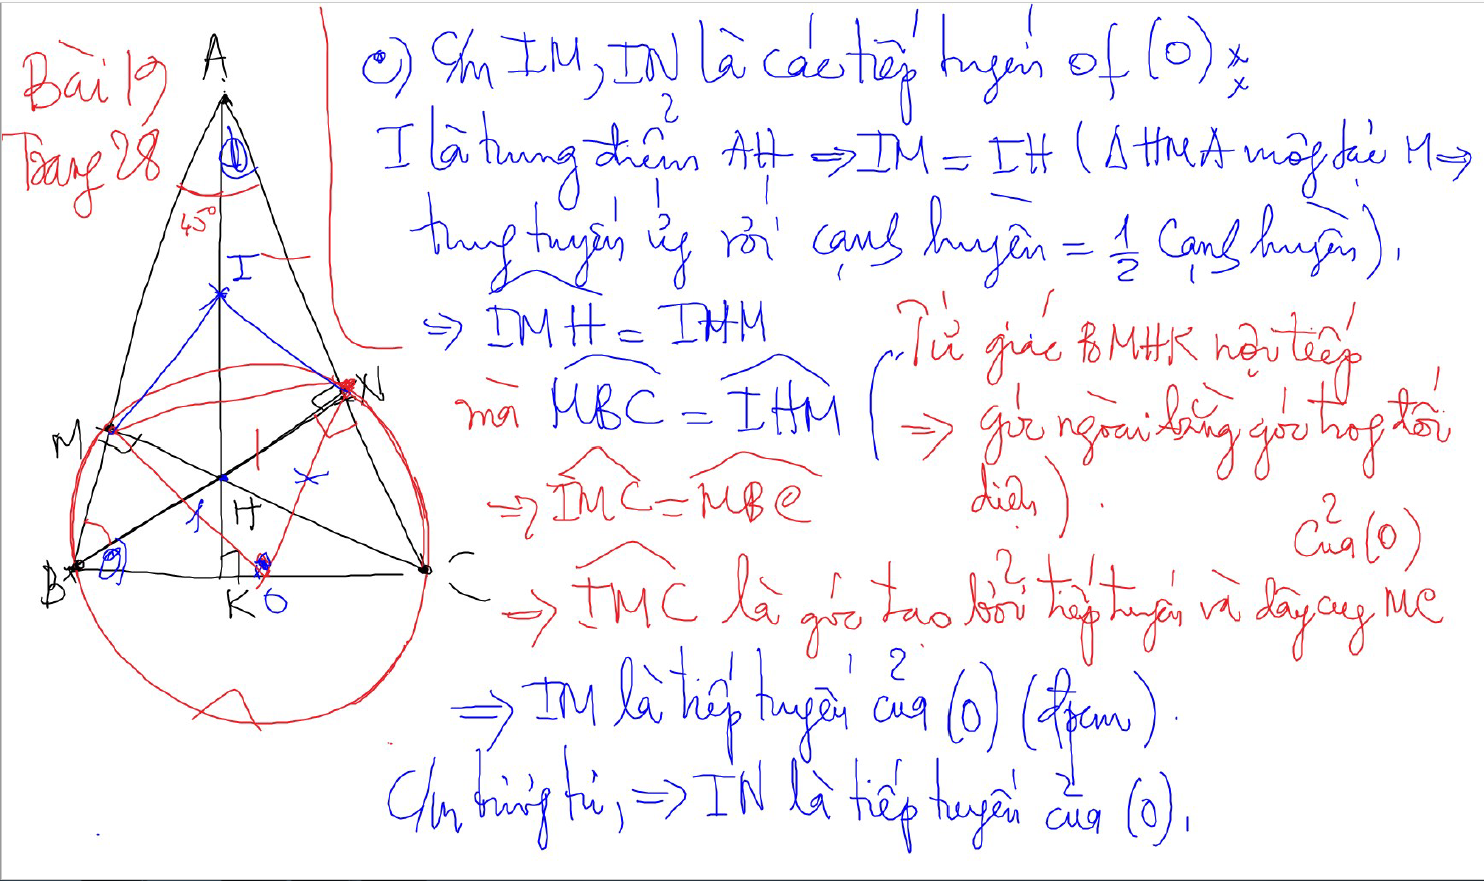 Bài 19
Trang 28
A
1
45°
I
M
N
1
H
B
K
O
C
c) C/m IM, IN là các tiếp tuyến of (O)
I là trung điểm AH => IM = IH (Δ HMA vuông tại M =>
trung tuyến ứng với cạnh huyền = 1/2 cạnh huyền).
=> IMH = IHM
mà MBC = IHM
(Tứ giác BMHK nội tiếp
=> góc ngoài bằng góc trog đối
diện).
=> IMC = MBC
=> IMC là góc tạo bởi tiếp tuyến và dây cug MC
của (O)
=> IM là tiếp tuyến của (O) (đpcm).
C/m tương tự, => IN là tiếp tuyến của (O).